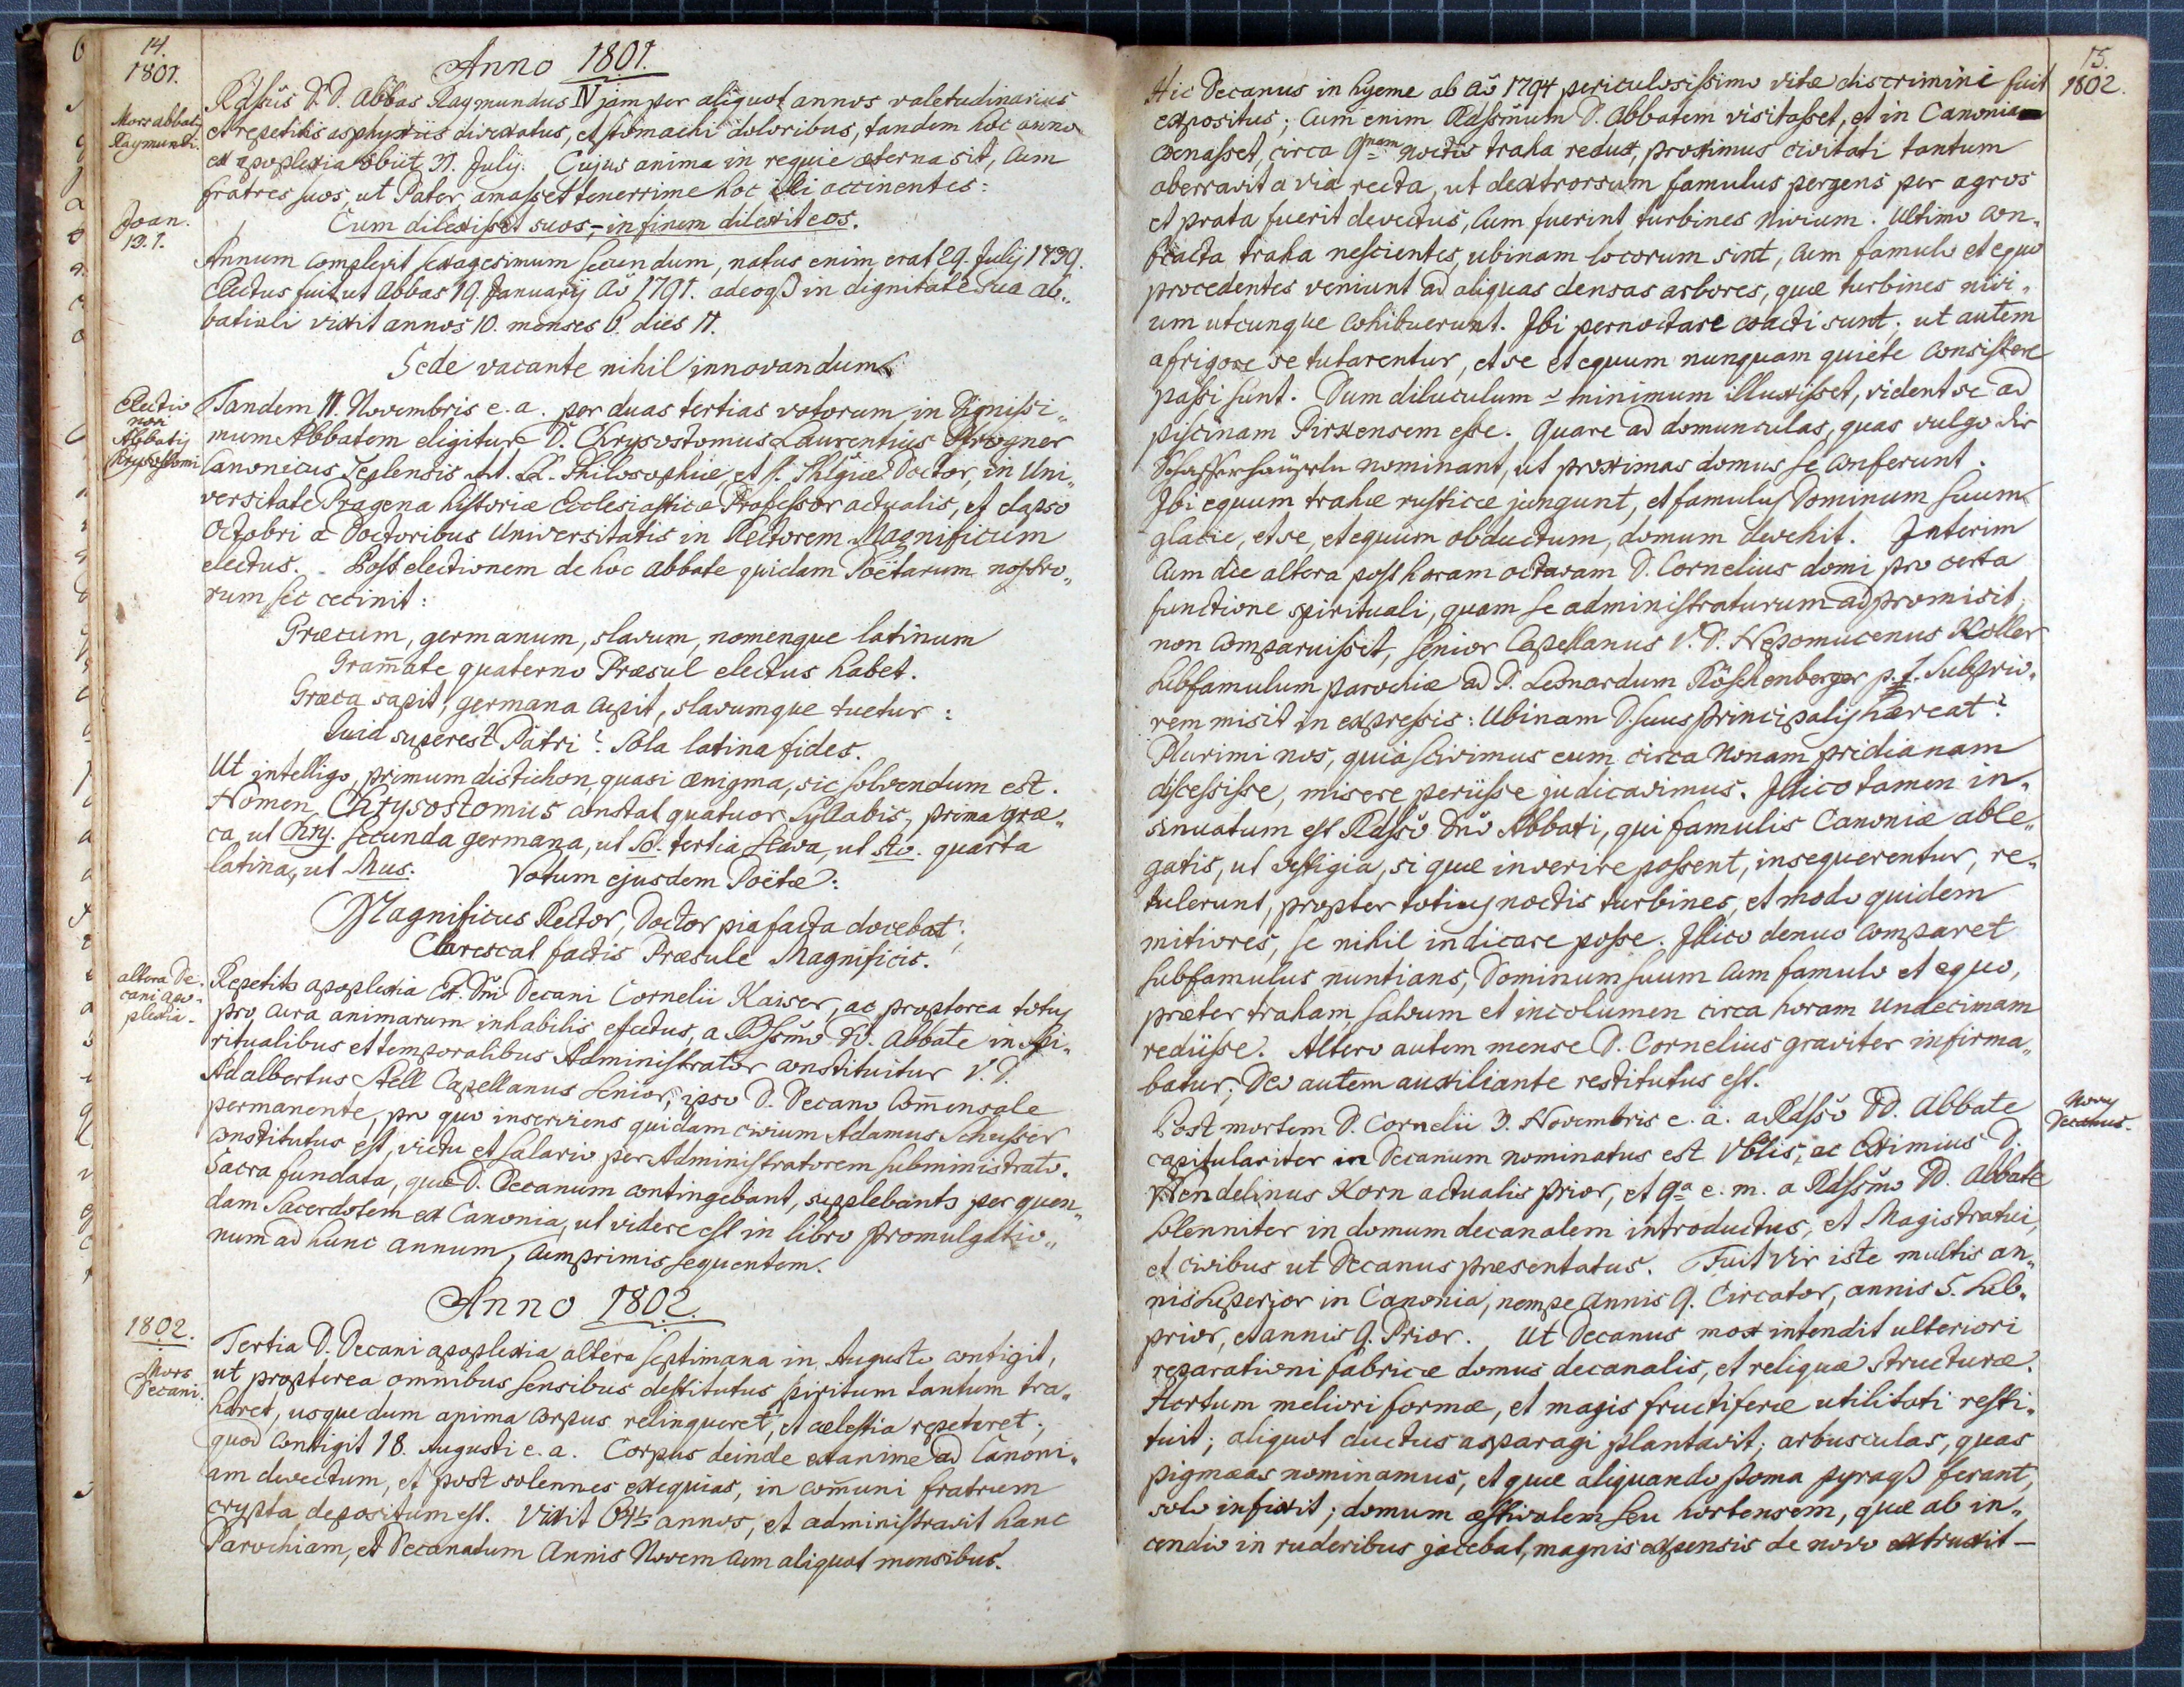 14.
1801.
Anno 1801.
Mors abbat.
Raymundi.
Rdssus D. D. Abbas Raymundus IV jam per aliquot annos valetudinarius
et repetitis asphyxiis divexatus, et stomachi doloribus, tandem hoc anno
ex apoplexia obiit 31. July. Cujus anima in requie æterna sit, cum
fratres suos, ut Pater, amasset tenerrime hoc illi accinentes:
Joan.
13. 1.
Cum dilexisset suos, in finem dilexit eos.
Annum complevit sexagesimum secundum, natus enim erat 29. July 1739.
Electus fuit ut Abbas 19. January aō 1791. adeoq3 in dignitate sua ab„
batiali vixit annos 10. menses 6. dies 11.
Sede vacante nihil innovandum.
Electio
non
Abbatis
Krysostomi
Tandem 11. Novembris e. a. per duas tertias votorum in Dignissi„
mum Abbatem eligitur D. Chrysostomus Laurentius Pfrogner
Canonicus Teplensis AA. LL. Philosophiæ, et S. Thlgiæ Doctor, in Uni„
versitate Pragena historiæ Ecclesiasticæ Professor actualis, et elapso
Octobri a Doctoribus Universitatis in Rectorem Magnificum
electus. - Post electionem de hoc abbate quidam Poëtarum nostro„
rum sic cecinit:
Græcum, germanum, slavum, nomenque latinum
Gram̄ate quaterno Præsul electus habet.
Græca sapit, germana cupit, slavumque tuetur:
Quid superest Patri? Sola latina fides.
Ut intelligo, primum distichon, quasi ænigma, sic solvendum est.
Nomen Chrysostomus constat quatuor Syllabis, prima græ„
ca, ut Chry. secunda germana, ut So. tertia slava, ut sto. quarta
latina, ut Mus. Votum ejusdem Poëtæ:
Magnificus Rector, Doctor pia facta docebat;
Clarescat factis Præsule Magnificis.
altera De-
cani apo-
plexia.
Repetita apoplexia Ex. Dni Decani Cornelii Kaiser, ac propterea totus
pro cura animarum inhabilis effectus, a Rdssmo DD. Abbate in Spi„
ritualibus et temporalibus Administrator constituitur V. D.
Adalbertus Stell Capellanus Senior, ipso D. Decano Com̄ensale
permanente, pro quo inserviens quidam civium Adamus Schusser
constitutus est, victu et salario per Administratorem subministrato.
Sacra fundata, quæ D. Decanum contingebant, supplebantr per quen„
dam Sacerdotem ex Canonia, ut videre est in libro promulgatio„
num ad hunc annum, cumprimis sequentem.
Anno 1802.
1802.
Mors
Decani.
Tertia D. Decani apoplexia altera septimana in Augusto contigit,
ut propterea omnibus sensibus destitutus spiritum tantum tra„
heret, usque dum anima corpus relinqueret, et cælestia repeteret;
quod contigit 18. Augusti e. a. Corpus deinde exanime ad Canoni„
am devectum, et post solennes exequias, in com̄uni fratrum
crypta depositum est. Vixit annos, et administravit hanc
Parochiam, et Decanatum Annis Novem cum aliquot mensibus.
15.
1802.
Hic Decanus in hyeme ab aō 1794 periculosissimo vitæ discrimini fuit
expositus; Cum enim Rdssmum D. Abbatem visitasset, et in Canonia
coenasset, circa 9nam noctis traha redux, proximus civitati tantum
aberravit a via recta, ut dextrorsum famulus pergens per agros
et prata fuerit devectus, cum fuerint turbines nivium. Ultimo con„
fracta traha nescientes, ubinam locorum sint, cum famulo et equo
procedentes veniunt ad aliquas densas arbores, quæ turbines nivi„
um utcunque cohibuerunt. Ibi pernoctare coacti sunt; ut autem
a frigore se tutarentur, et se et equum nunquam quiete consistere
passi sunt. Dum diluculum minimum illuxisset, vident se ad
piscinam Pirxensem esse. Quare ad domunculas, quas vulgo die
Schafferhäuseln nominant, ut proximas domus se conferunt.
Ibi equum trahæ rusticæ jungunt, et famulus Dominum suum
glacie, et se, et equum obductum, domum devehit. Interim
cum die altera post horam octavam D. Cornelius domi pro certa
functione spirituali, quam se administraturum adpromisit,
non comparuissit, senior Capellanus V. D. Nepomucenus Koller
subfamulum parochiæ ad D. Leonardum Röschenberger p. t. Subprio„
rem misit in expressis: Ubinam D. suus principalis hæreat?
Plurimi nos, quia scivimus eum circa Nonam pridianam
discessisse, misere periisse judicavimus. Illico tamen in„
sinuatum est Rdsso Dno Abbati, qui famulis Canoniæ able„
gatis, ut vestigia, si quæ invenire possent, insequerentur, re„
tulerunt, propter totius noctis turbines, et modo quidem
mitiores, se nihil indicare posse. Illico denuo comparet
subfamulus nuntians, Dominum suum cum famulo et equo,
præter traham, salvum et incolumen circa horam undecimam
rediisse. Altero autem mense D. Cornelius graviter infirma„
batur; Deo autem auxiliante restitutus est.
Novus
Decanus.
Post mortem D. Cornelii 3. Novembris e. a. a Rdsso DD. Abbate
capitulariter in Decanum nominatus est Vblis, ac Eximius D.
Wendelinus Korn actualis prior, et 9a e. m. a Rdssmo DD. Abbate
solenniter in domum decanalem introductus, et Magistratui,
et civibus ut Decanus præsentatus. Fuit vir iste multis an„
nis superior in Canonia, nempe annis 9. Circator, annis 5. Sub„
prior, et annis 9. Prior. Ut Decanus mox intendit ulteriori
reparationi fabricæ domus decanalis, et reliquæ structuræ.
Hortum meliori formæ, et magis fructiferæ utilitati resti„
tuit; aliquot ductus asparagi plantavit; arbusculas, quas
pigmæas nominamus, et quæ aliquando poma pyraq3 ferant,
solo infixit; domum æstivalem seu hortensem, quæ ab in„
cendio in ruderibus jacebat, magnis expensis de novo extruxit —